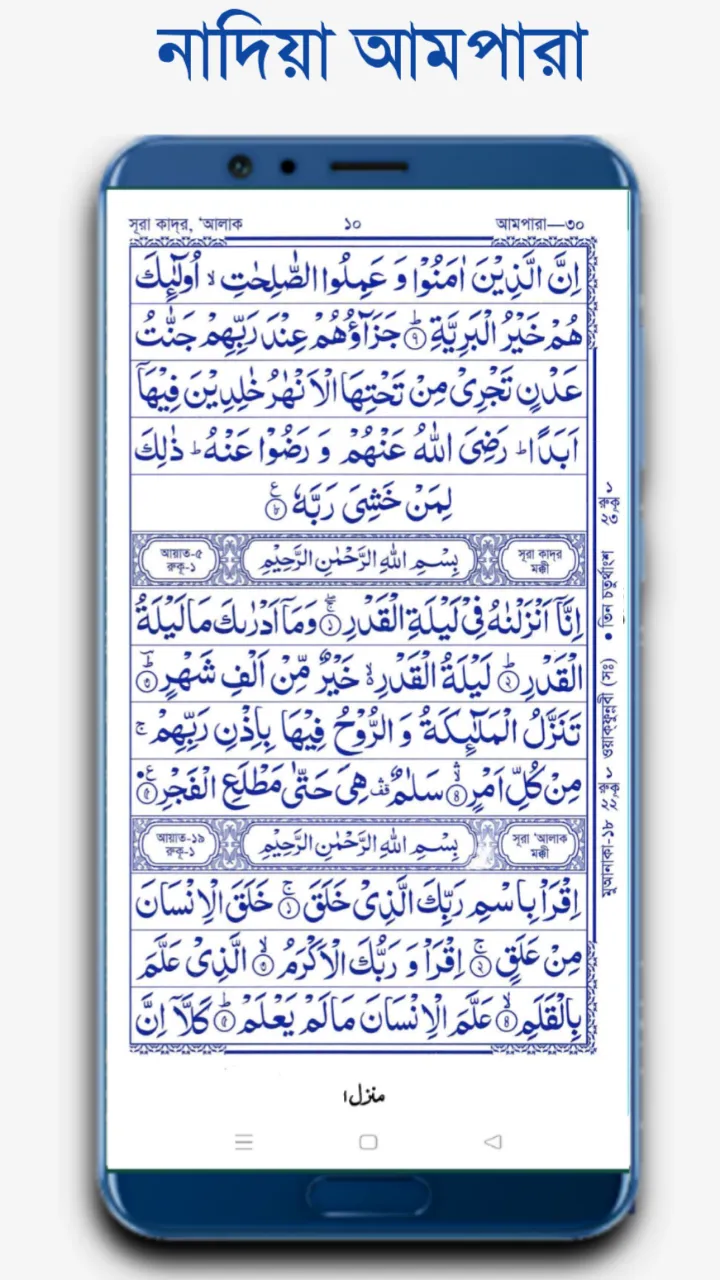 নাদিয়া আমপারা
সূরা কাদ্‌র, ‘আলাক
১০
আমপারা—৩০
اِنَّ الَّذِيْنَ اٰمَنُوْا وَ عَمِلُوا الصّٰلِحٰتِ ۙ اُولٰٓئِكَ
هُمْ خَيْرُ الْبَرِيَّةِ ؕ﴿٩﴾ جَزَآؤُهُمْ عِنْدَ رَبِّهِمْ جَنّٰتُ
عَدْنٍ تَجْرِىْ مِنْ تَحْتِهَا الْاَنْهٰرُ خٰلِدِيْنَ فِيْهَاۤ
اَبَدًا ؕ رَضِىَ اللّٰهُ عَنْهُمْ وَ رَضُوْا عَنْهُ ؕ ذٰلِكَ
لِمَنْ خَشِىَ رَبَّهٗ ﴿٨﴾ ع
সূরা কাদ্‌র
মক্কী
بِسْمِ اللّٰهِ الرَّحْمٰنِ الرَّحِيْمِ
আয়াত-৫
রুকূ-১
اِنَّاۤ اَنْزَلْنٰهُ فِىْ لَيْلَةِ الْقَدْرِ ﴿١﴾ وَمَاۤ اَدْرٰىكَ مَا لَيْلَةُ
الْقَدْرِ ؕ﴿٢﴾ لَيْلَةُ الْقَدْرِ ۙ خَيْرٌ مِّنْ اَلْفِ شَهْرٍ ؕ﴿٣﴾
تَنَزَّلُ الْمَلٰٓئِكَةُ وَ الرُّوْحُ فِيْهَا بِاِذْنِ رَبِّهِمْ ۚ
مِنْ كُلِّ اَمْرٍ ۙ﴿٤﴾ سَلٰمٌ ۛ هِىَ حَتّٰى مَطْلَعِ الْفَجْرِ ﴿٥﴾ ع
সূরা ‘আলাক
মক্কী
بِسْمِ اللّٰهِ الرَّحْمٰنِ الرَّحِيْمِ
আয়াত-১৯
রুকূ-১
اِقْرَاْ بِاسْمِ رَبِّكَ الَّذِىْ خَلَقَ ۚ﴿١﴾ خَلَقَ الْاِنْسَانَ
مِنْ عَلَقٍ ۚ﴿٢﴾ اِقْرَاْ وَ رَبُّكَ الْاَكْرَمُ ۙ﴿٣﴾ الَّذِىْ عَلَّمَ
بِالْقَلَمِ ۙ﴿٤﴾ عَلَّمَ الْاِنْسَانَ مَا لَمْ يَعْلَمْ ؕ﴿٥﴾ كَلَّاۤ اِنَّ
মুআনাকা-১৮
ওয়াকফুন্নবী (সঃ)
• তিন চতুর্থাংশ
منزل١